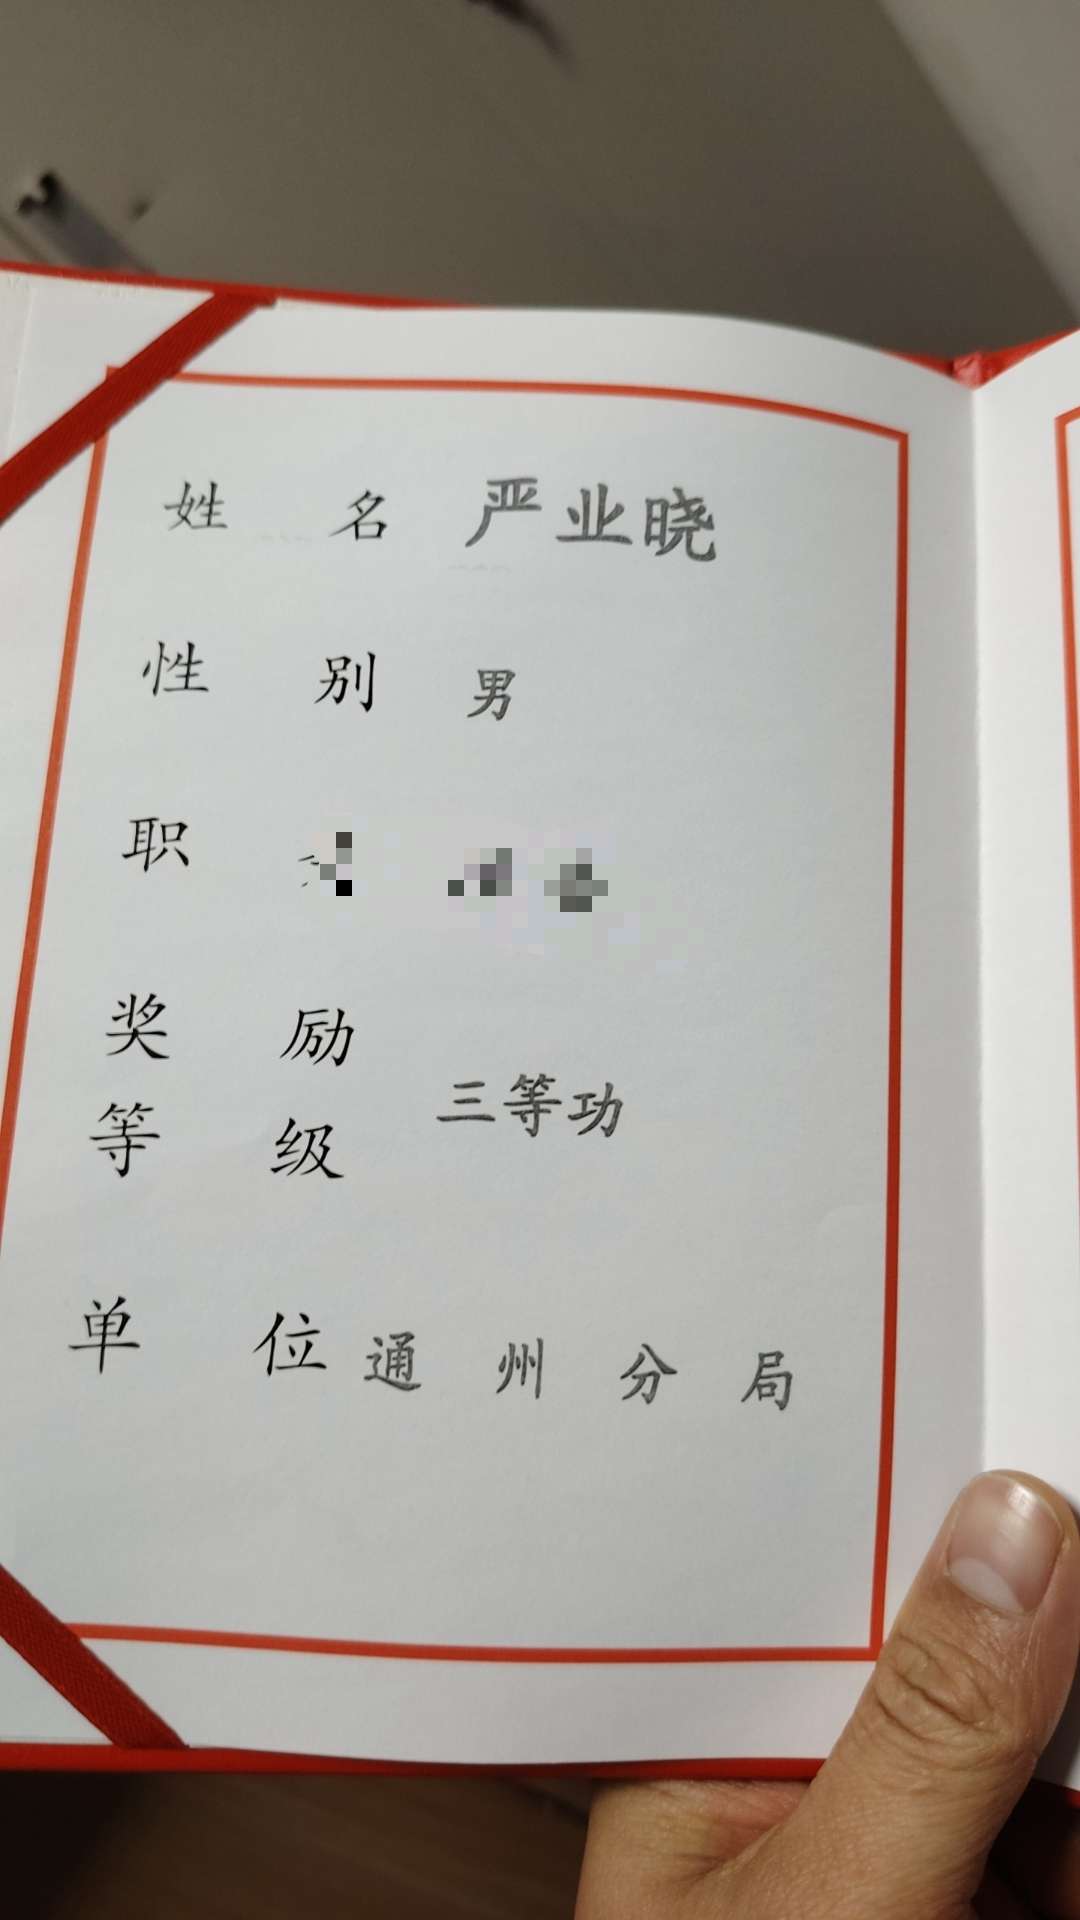 姓 名 严业晓
性 别 男
职
奖 励
等 级 三等功
单 位 通州分局